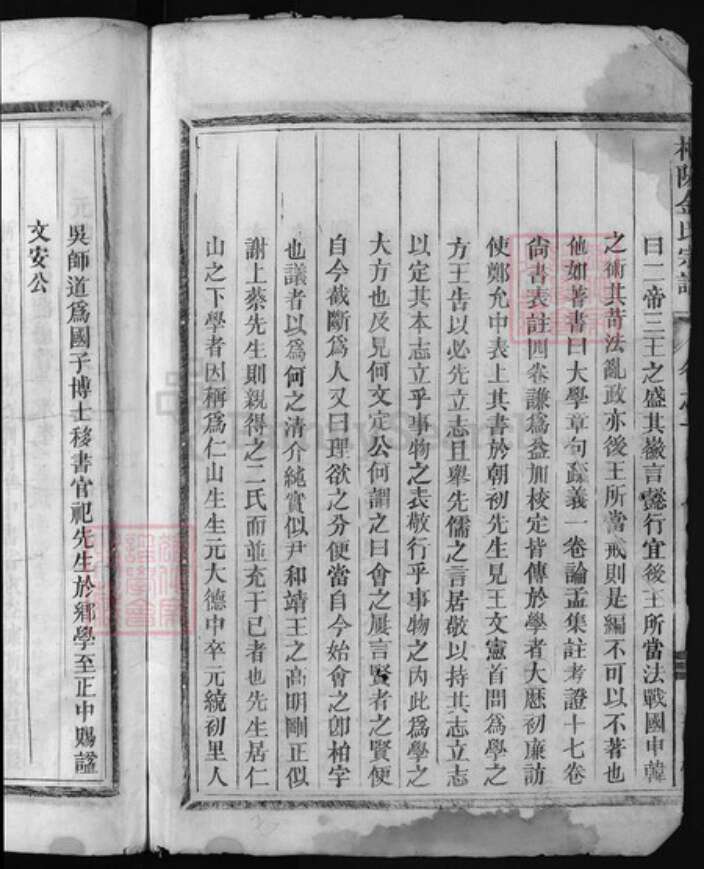 曰二帝三王之盛其嶶言懿行宜後王所當法戰國申韓
之術其苛法亂政亦後王所當戒則是編不可以不著也
他如著書曰大學章句疏義一卷論孟集註考證十七卷
尙書表註四卷謙爲益加校定皆傳於學者大厯初廉訪
使鄭允中表上其書於朝初先生見王文憲首問爲學之
方王告以必先立志且舉先儒之言居敬以持其志立志
以定其本志立乎事物之表敬行乎事物之内此爲學之
大方也及見何文定公何謂之曰會之屢言賢者之賢便
自今截斷爲人又曰理欲之分便當自今始會之卽柏字
也議者以爲何之清介純實似尹和靖王之高明剛正似
謝上蔡先生則親得之二氏而並充于已者也先生居仁
山之下學者因稱爲仁山生生元大德中卒元統初里人
吳師道爲國子博士移書官祀先生於鄉學至正中賜諡
文安公
金氏宗譜